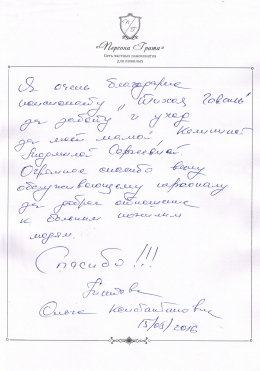 «Персона Грата»
Сеть частных пансионатов
для пожилых
Я очень благодарна
пансионату „Тихая Гавань"
за заботу и уход
за моей мамой,
Людмилой Сергеевной
Огромное спасибо всему
обслуживающему персоналу
за доброе отношение
к больным пожилым
людям.
Спасибо!!!
Ольга Константиновна
15/03/2016